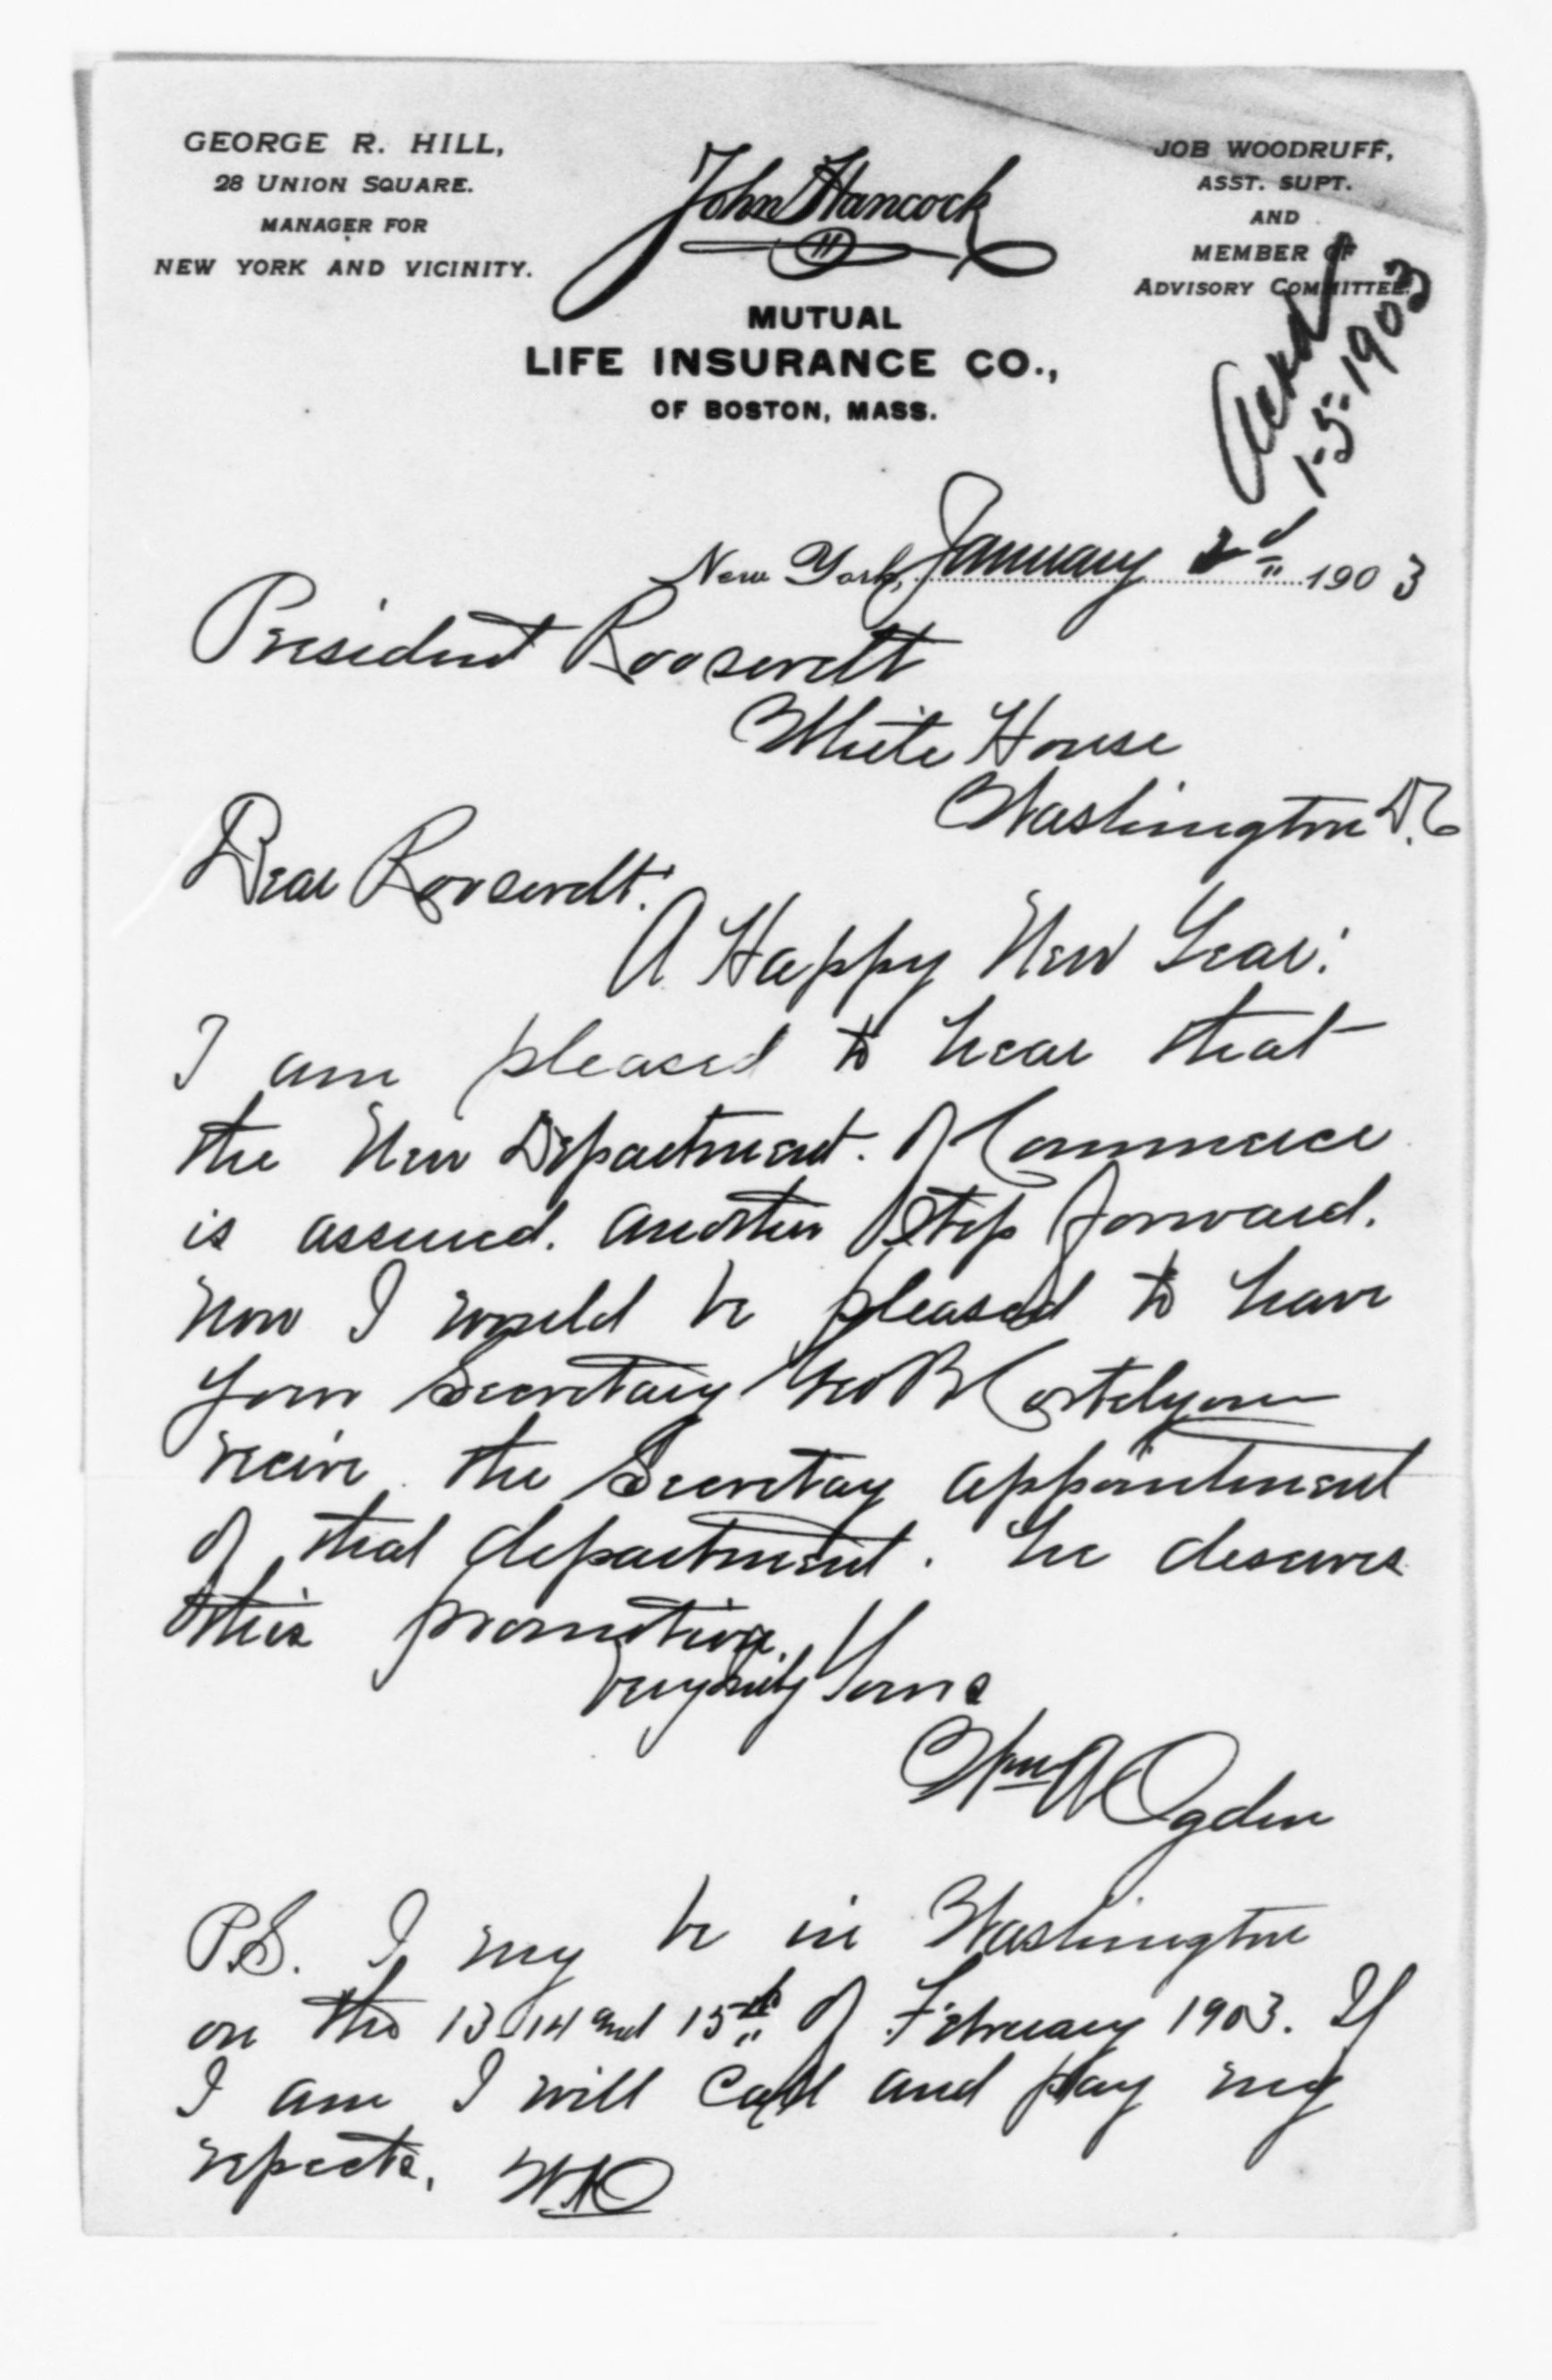 GEORGE R. HILL,
28 UNION SQUARE.
MANAGER FOR
NEW YORK AND VICINITY.
John Hancock
MUTUAL
LIFE INSURANCE CO.,
OF BOSTON, MASS.
JOB WOODRUFF,
ASST. SUPT.
AND
MEMBER OF
ADVISORY COMMITTEE.
Ackd
1-5-1903
New York, January 2d 1903
President Roosevelt
White House
Washington D.C
Dear Roosevelt:
A Happy New Year:
I am pleased to hear that
the New Department of Commerce
is assured. another step forward.
now I would be pleased to have
your Secretary Geo B Cortelyou
receive the Secretay appointment
of that department. he deserves
this promotion.
Very Yours
Wm A Ogden
P.S. I my be in Washington
on the 13 14 and 15th of February 1903. If
I am I will call and pay my
repects. WAO